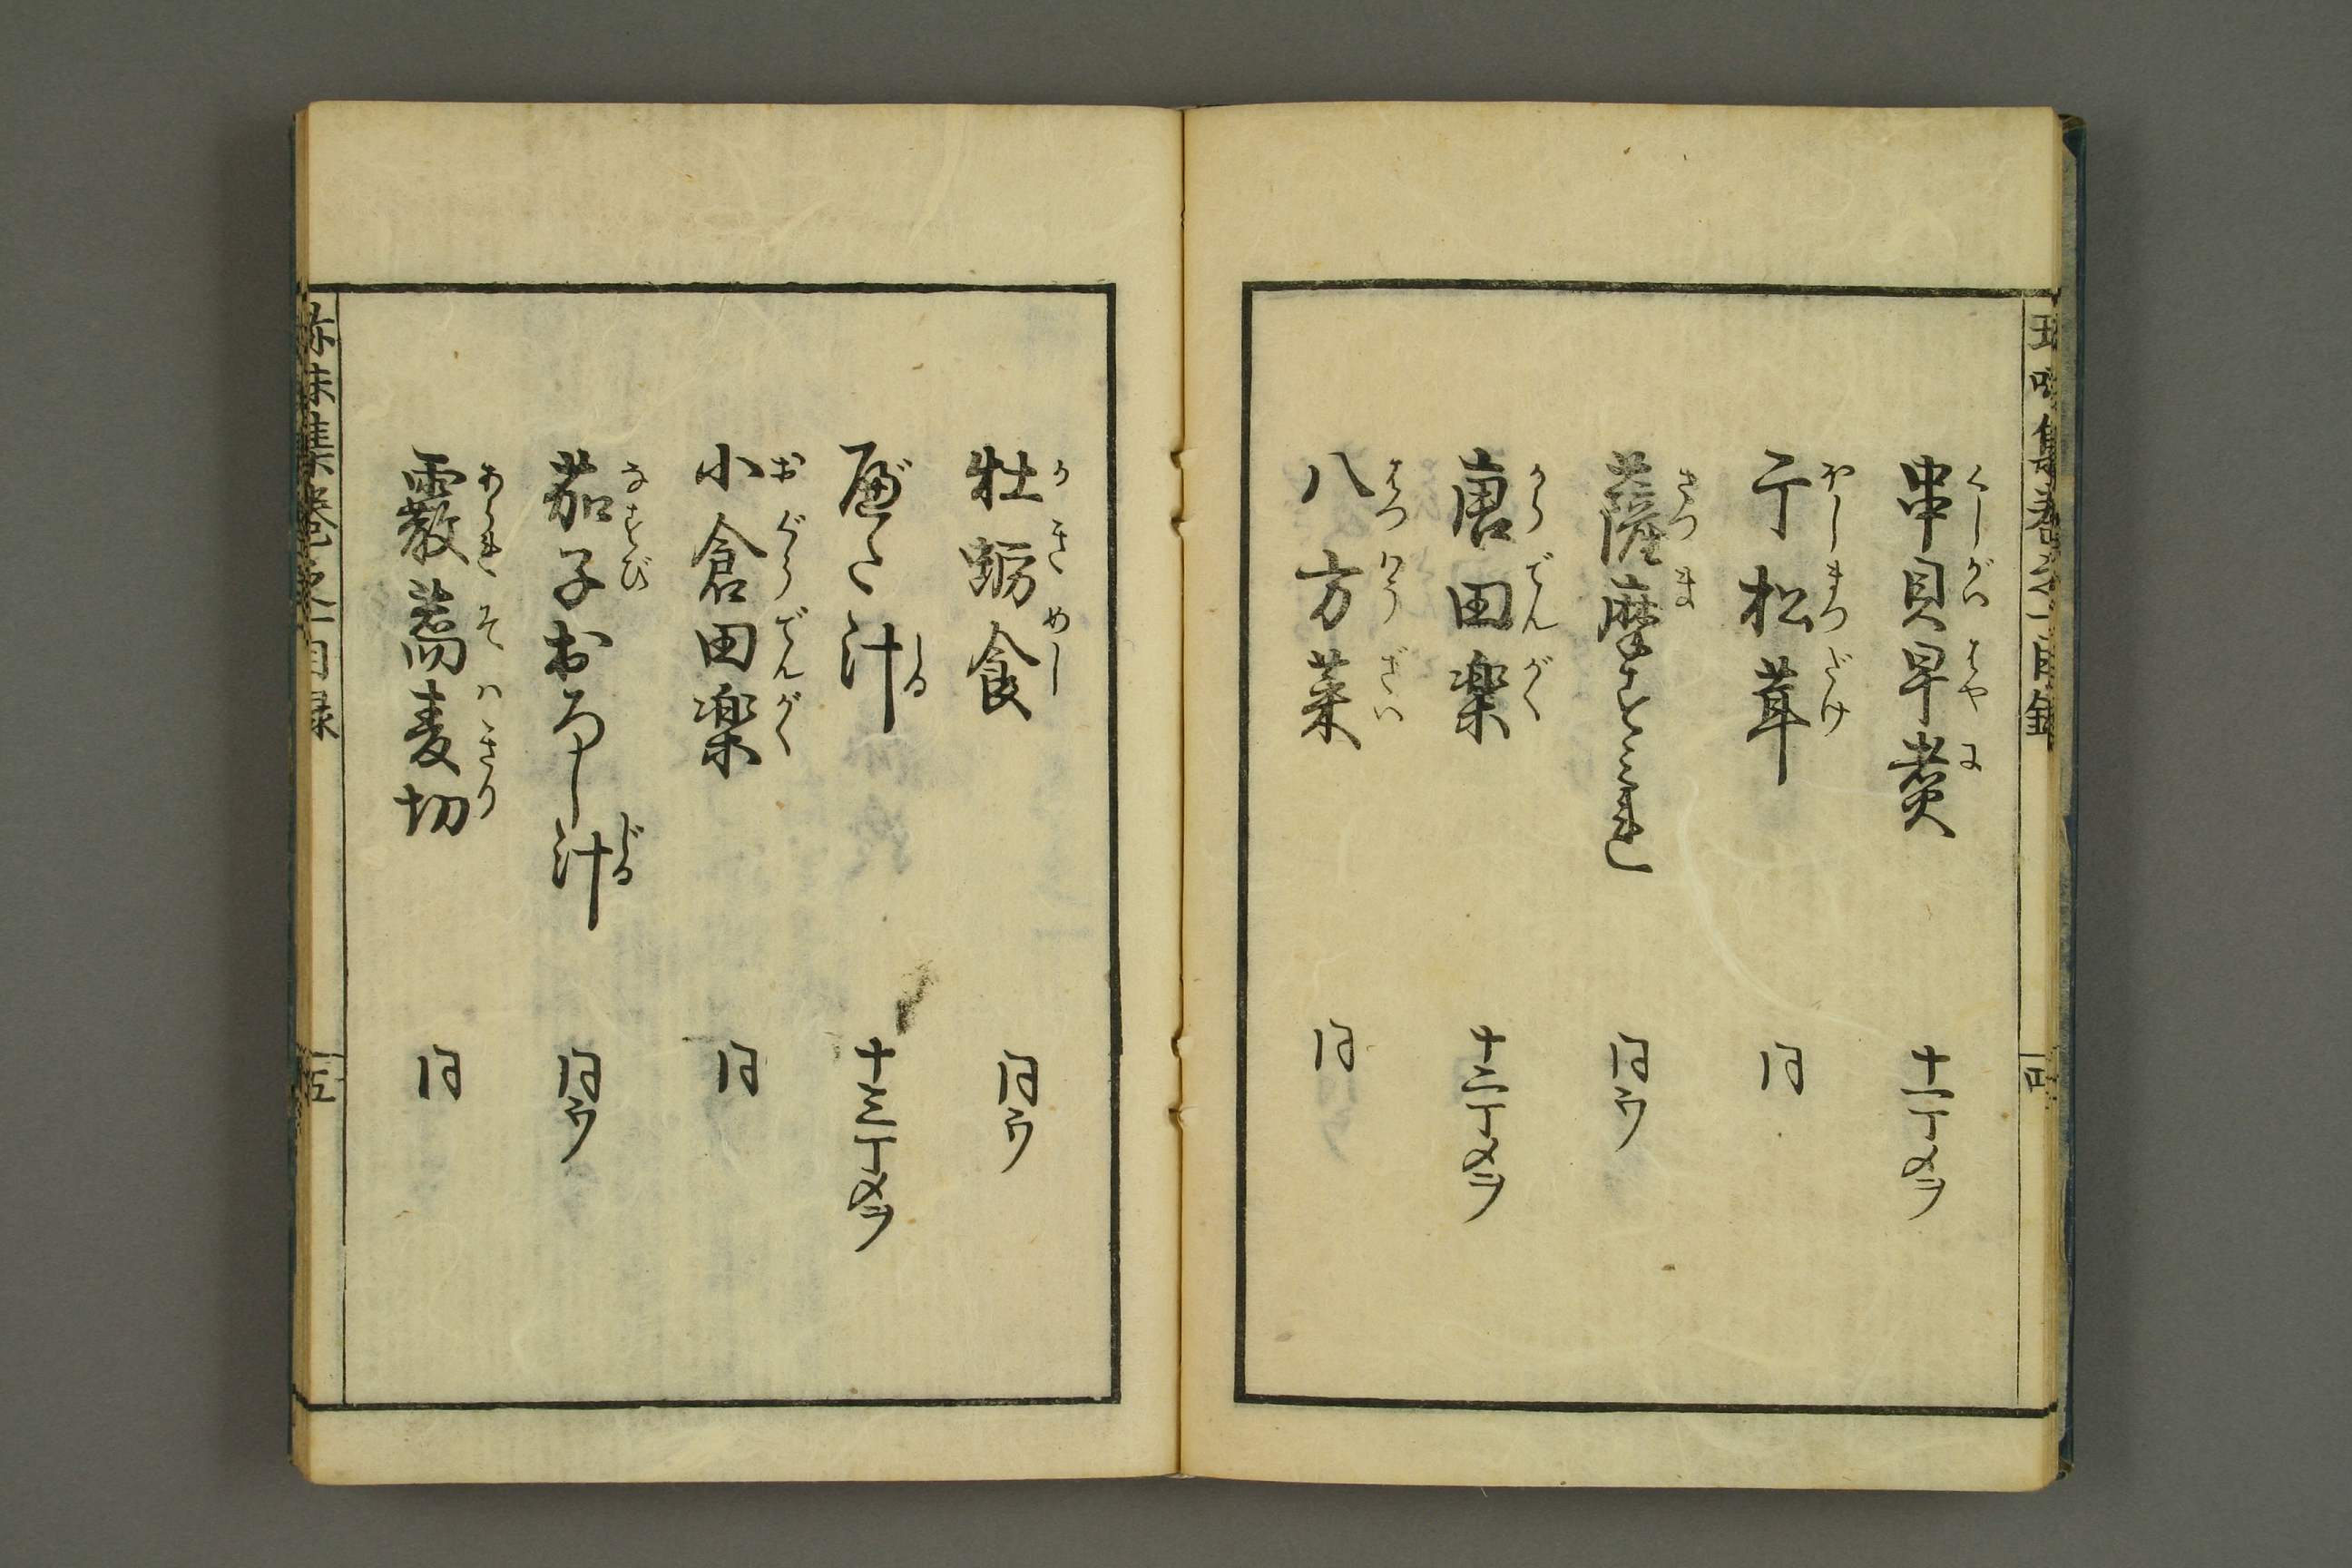 串貝早煮 十一丁メヲ
くしがいはやに
干松茸 同
ほしまつだけ
薩摩すミれ 同ウ
さつま
唐田楽 十二丁メヲ
からでんがく
八方菜 同
はつはうざい
牡蛎食 同ウ
かきめし
汁 十三丁メヲ
しる
小倉田楽 同
おぐらでんがく
茄子おろし汁 同ウ
なすび じる
霰蕎麦切 同
あられそハきり
味集巻之一目録